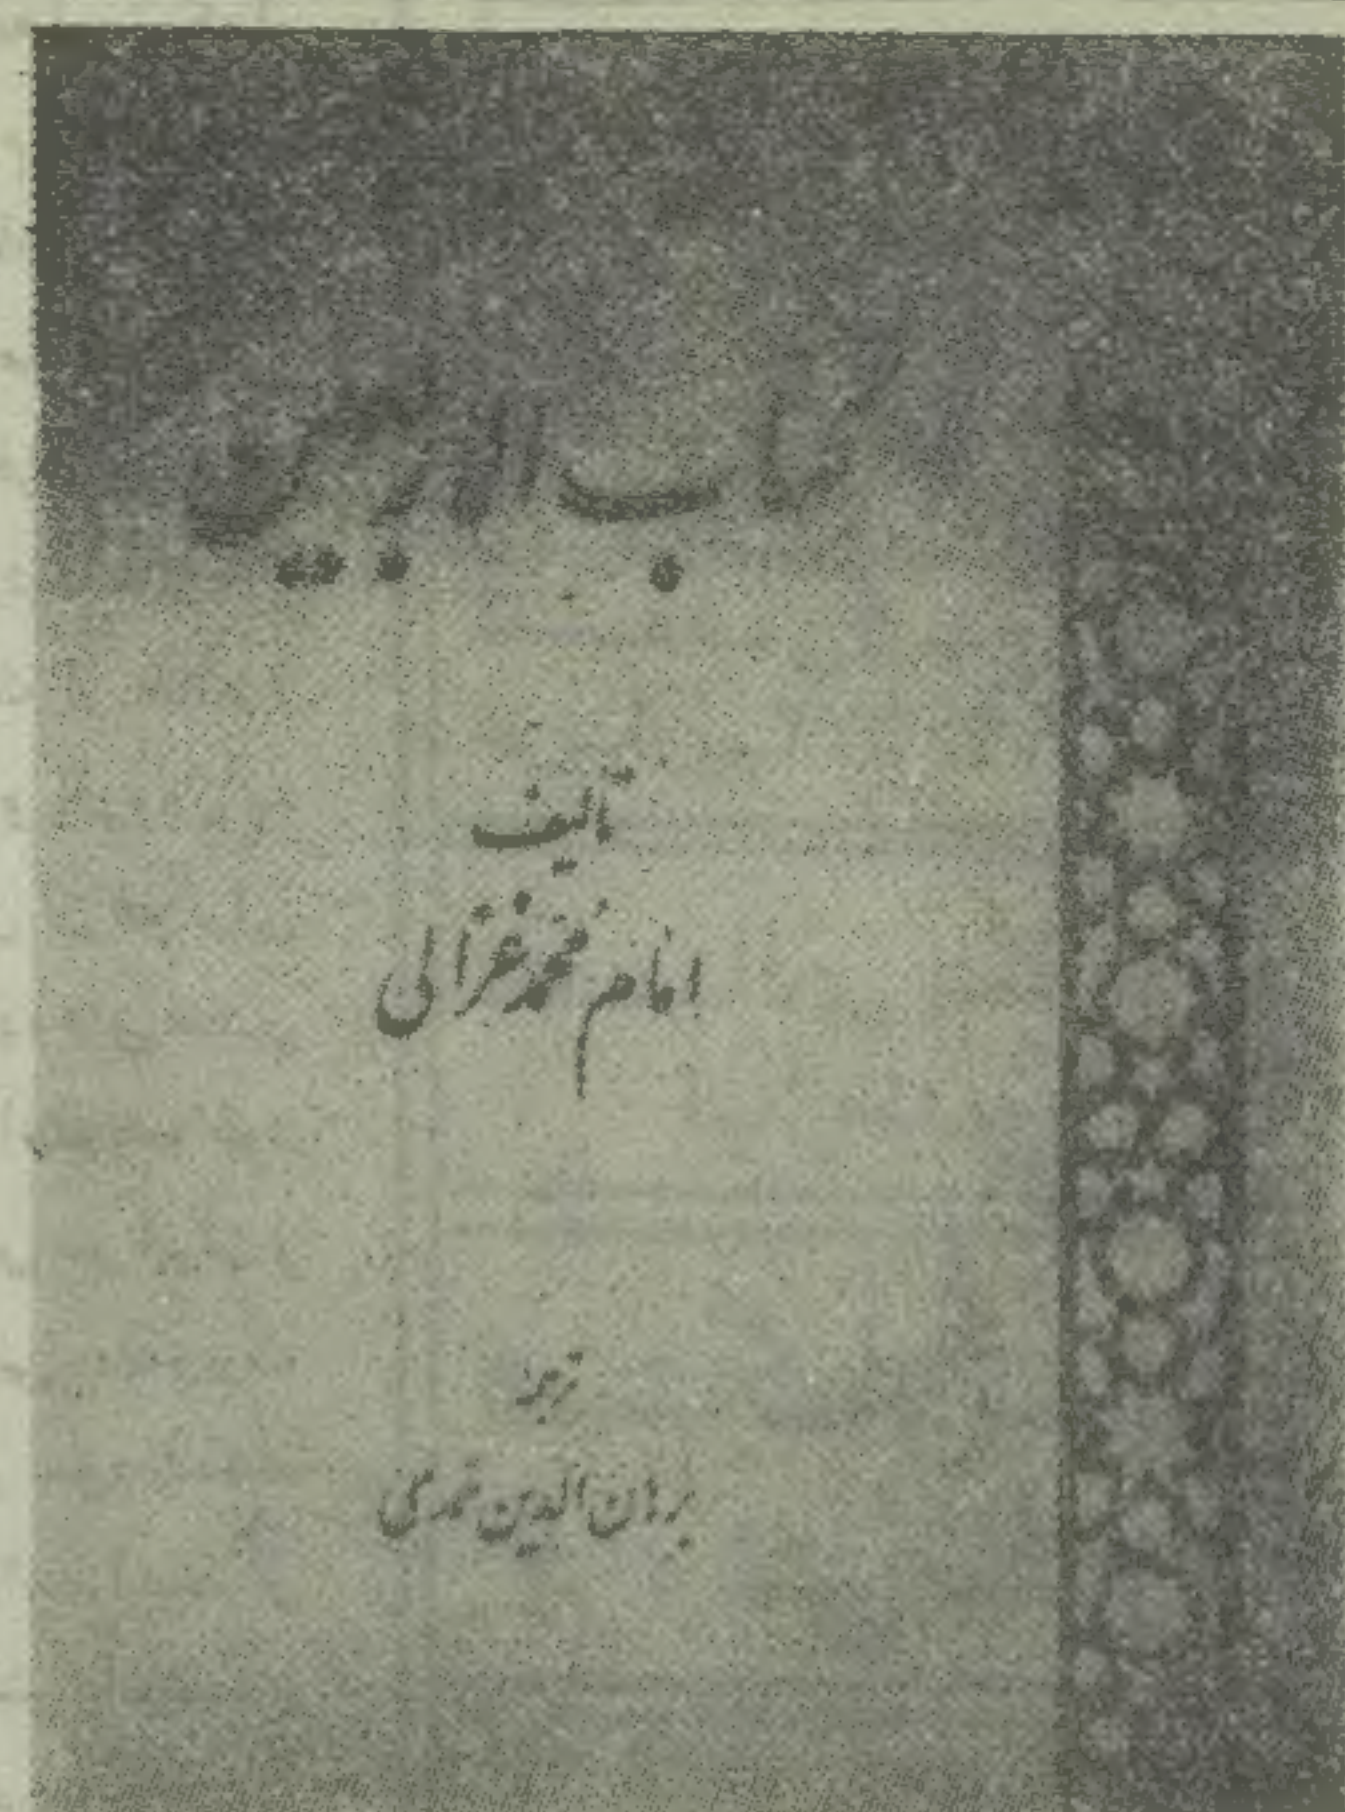 کتاب الاربعین
تألیف
امام محمد غزالی
ترجمه
برهان الدین حمدی